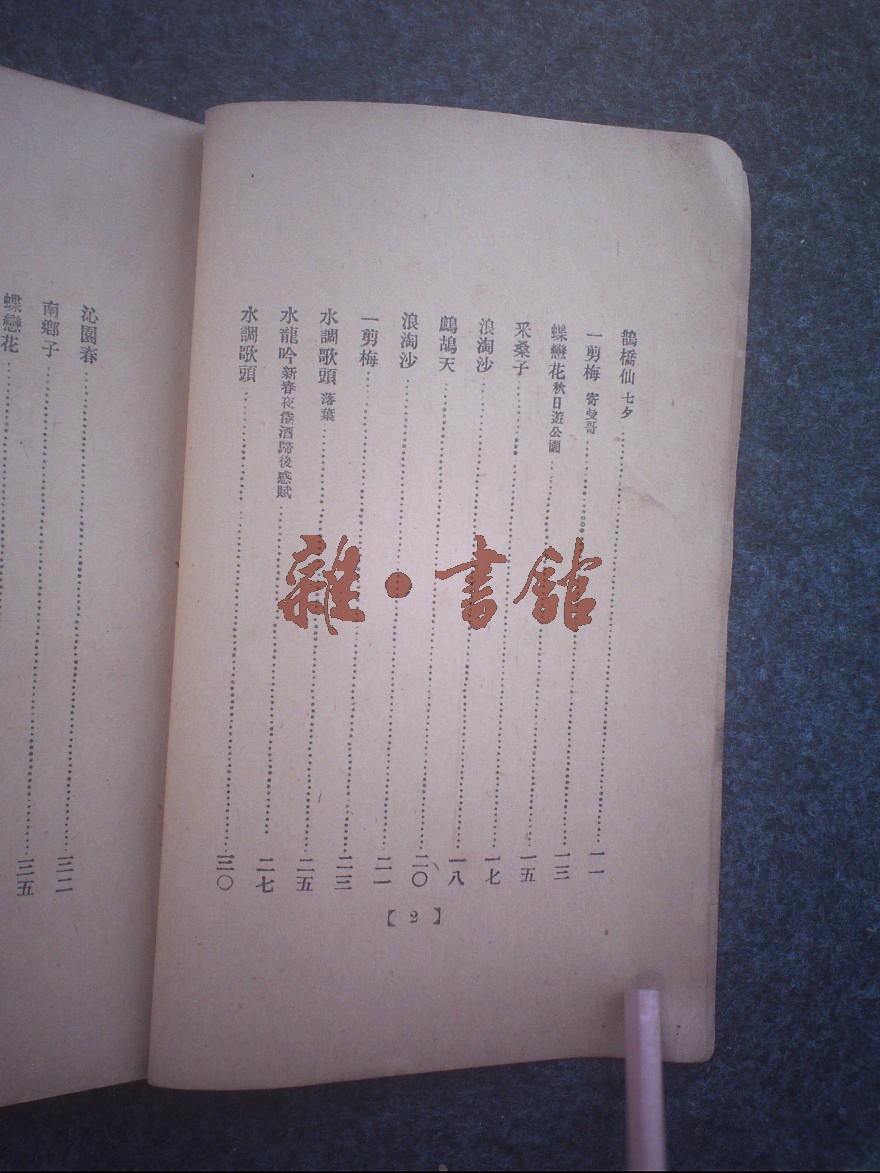 鵲橋仙 七夕……一一
一剪梅 寄哥……一三
蝶戀花 秋日遊公園……一五
采桑子……一七
浪淘沙……一八
鷓鴣天……二〇
浪淘沙……二一
一剪梅……二三
水調歌頭 落葉……二五
水龍吟 新春夜酒歸後感賦……二七
水調歌頭……三〇
【2】
沁園春……三二
南鄉子……三五
蝶戀花……
雜·書館